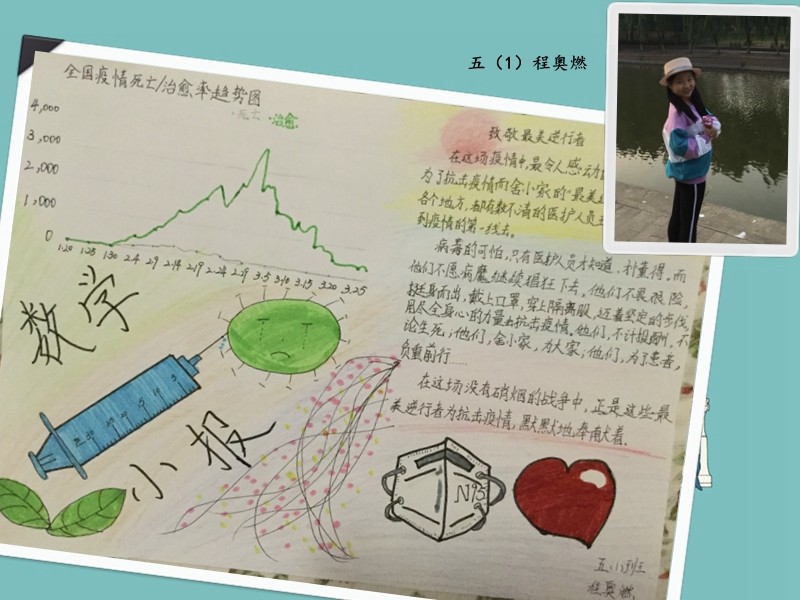 五（1）程奥燃
全国疫情死亡/治愈率趋势图
·死亡 ·治愈
4,000
3,000
2,000
1,000
0
1.20 1.25 1.30 2.4 2.9 2.14 2.19 2.24 2.29 3.5 3.10 3.15 3.20 3.25
数学
小报
致敬最美逆行者
在这场疫情中,最令人感动
为了抗击疫情而舍小家的"最美
各个地方,都有数不清的医护人员
到疫情的第一线去。
病毒的可怕,只有医护人员才知道,才懂得。而
他们不愿病魔继续猖狂下去。他们不畏艰险,
挺身而出,戴上口罩,穿上隔离服,迈着坚定的步伐,
用尽全身心的力量去抗击疫情。他们,不计报酬,不
论生死;他们,舍小家,为大家;他们,为了患者,
负重前行……
在这场没有硝烟的战争中,正是这些最
美逆行者为抗击疫情,默默地奉献着.
N95
五(1)班
程奥燃